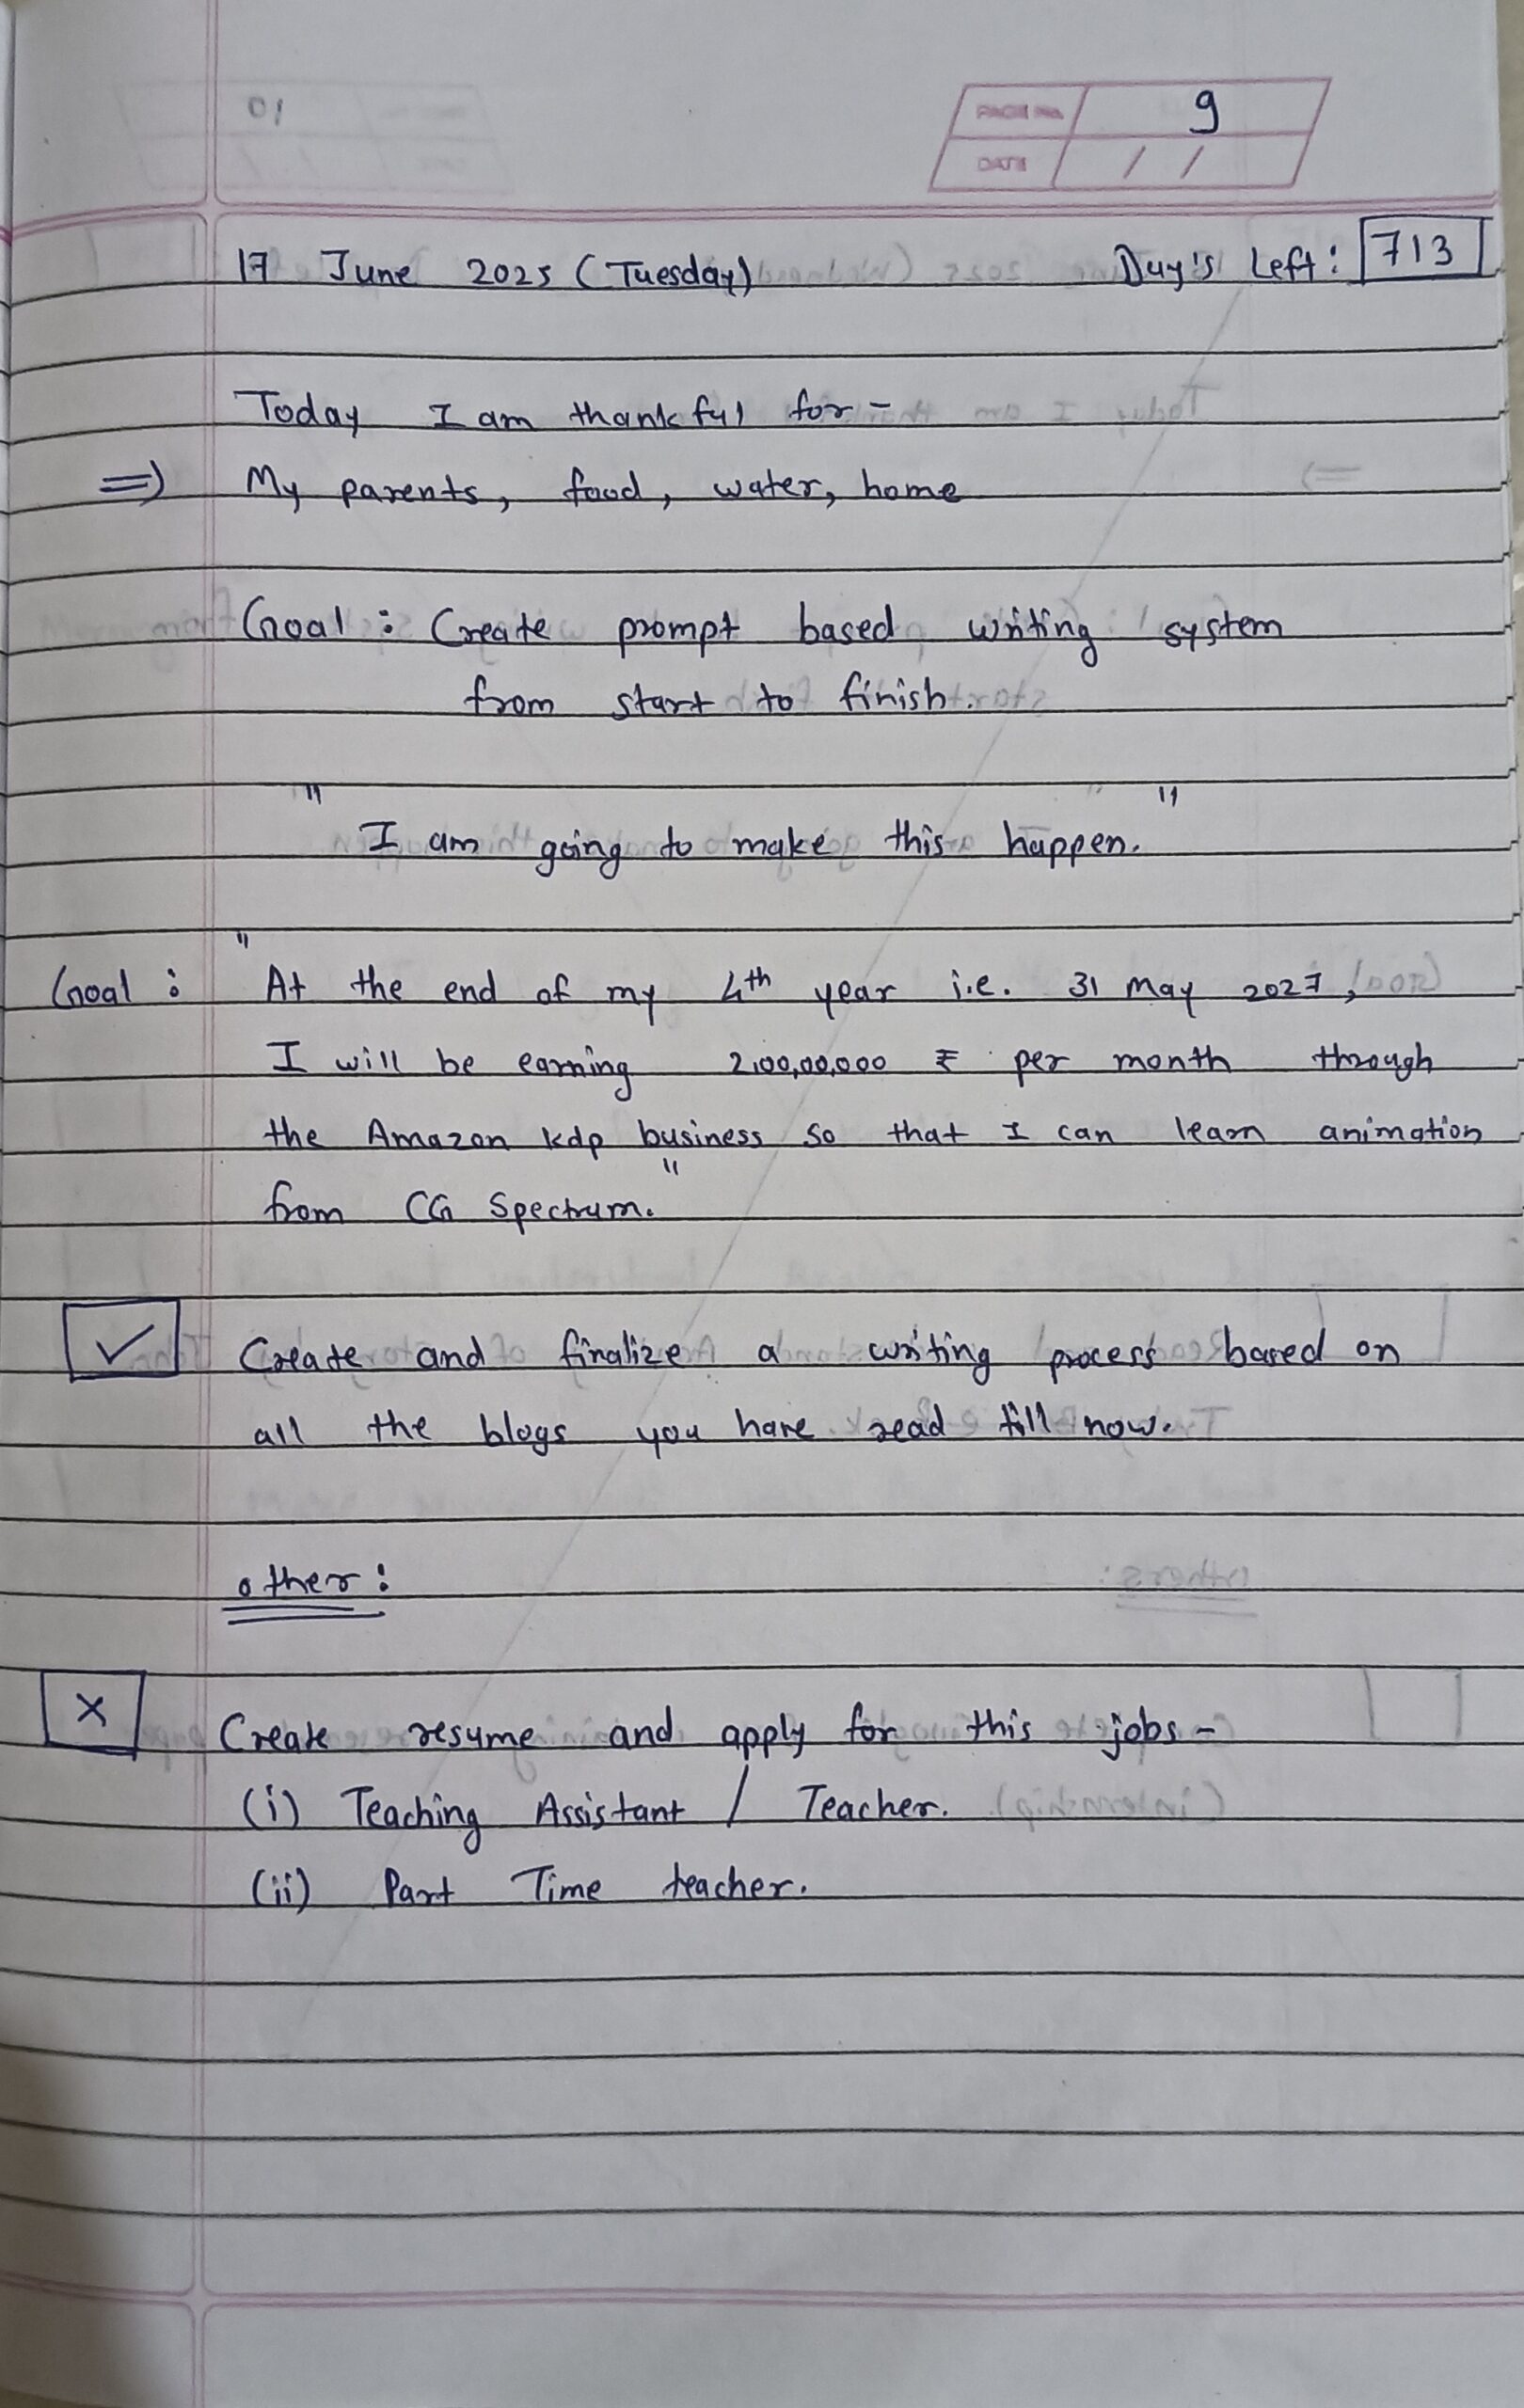 PAGE No. 9
DATE / /
17 June 2025 (Tuesday) Day's Left: 713
Today I am thankful for -
=> My parents, food, water, home
Goal : Create prompt based writing system
from start to finish.
" I am going to make this happen. "
Goal : "At the end of my 4th year i.e. 31 May 2027,
I will be earning 2,00,00,000 ₹ per month through
the Amazon kdp business so that I can learn animation
from CG Spectrum."
✓ Create and finalize a writing process based on
all the blogs you have read till now.
other :
X Create resume and apply for this jobs -
(i) Teaching Assistant / Teacher.
(ii) Part Time teacher.